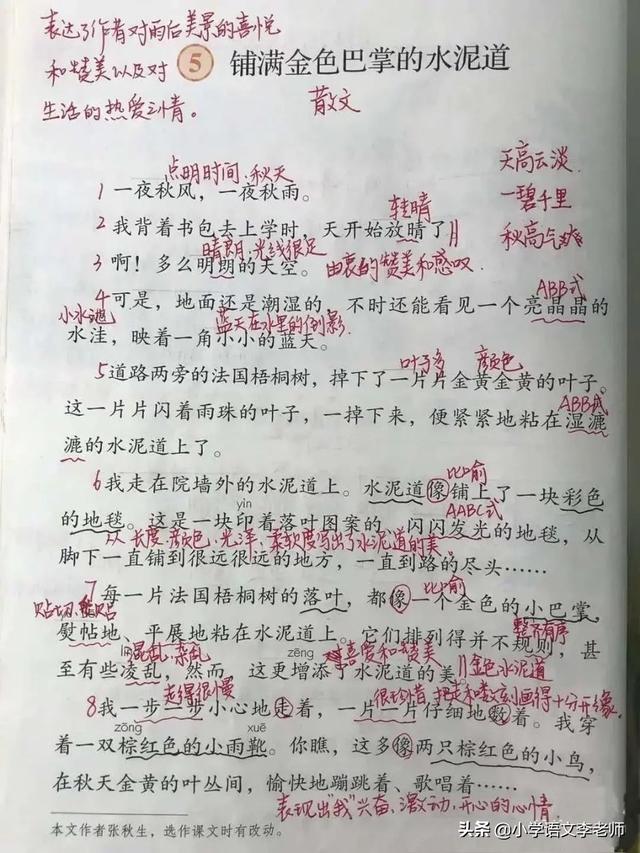 表达了作者对雨后美景的喜悦
和赞美以及对
生活的热爱之情。
5 铺满金色巴掌的水泥道
散文
点明时间:秋天
天高云淡
1 一夜秋风，一夜秋雨。
一碧千里
转晴
2 我背着书包去上学时，天开始放晴了
秋高气爽
晴朗,光线很足
3 啊！多么明朗的天空。
由衷的赞美和感叹.
ABB式
4 可是，地面还是潮湿的，不时还能看见一个亮晶晶的
小水洼
蓝天在水里的倒影.
水洼，映着一角小小的蓝天。
叶子多 颜色
5 道路两旁的法国梧桐树，掉下了一片片金黄金黄的叶子。
ABB式
这一片片闪着雨珠的叶子，一掉下来，便紧紧地粘在湿漉
漉的水泥道上了。
比喻
6 我走在院墙外的水泥道上。水泥道像铺上了一块彩色
yìn
AABC式
的地毯。这是一块印着落叶图案的、闪闪发光的地毯，从
从长度.颜色.光泽.柔软度写出了水泥道的美。
脚下一直铺到很远很远的地方，一直到路的尽头……
比喻
7 每一片法国梧桐树的落叶，都像一个金色的小巴掌，
熨帖地、平展地粘在水泥道上。它们排列得并不规则，甚
混乱.杂乱
zēng
喜爱和赞美
至有些凌乱，然而，这更增添了水泥道的美。
金色水泥道
走得很慢
8 我一步一步小心地走着，一片一片仔细地数着。我穿
zōng
xuē
着一双棕红色的小雨靴。你瞧，这多像两只棕红色的小鸟，
在秋天金黄的叶丛间，愉快地蹦跳着、歌唱着……
表现出"我"兴奋、激动.开心的心情.
本文作者张秋生，选作课文时有改动。
头条 @小学语文李老师